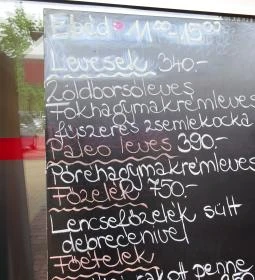 Ebéd: 11:00-15:00
Levesek 340.-
Zöldborsóleves
Fokhagymakrémleves
fűszeres zsemlekocka
Paleo leves 390.-
Póréhagymakrémleves
Főzelék 750.-
Lencsefőzelék sült
debrecenivel
Főételek
rakott penne